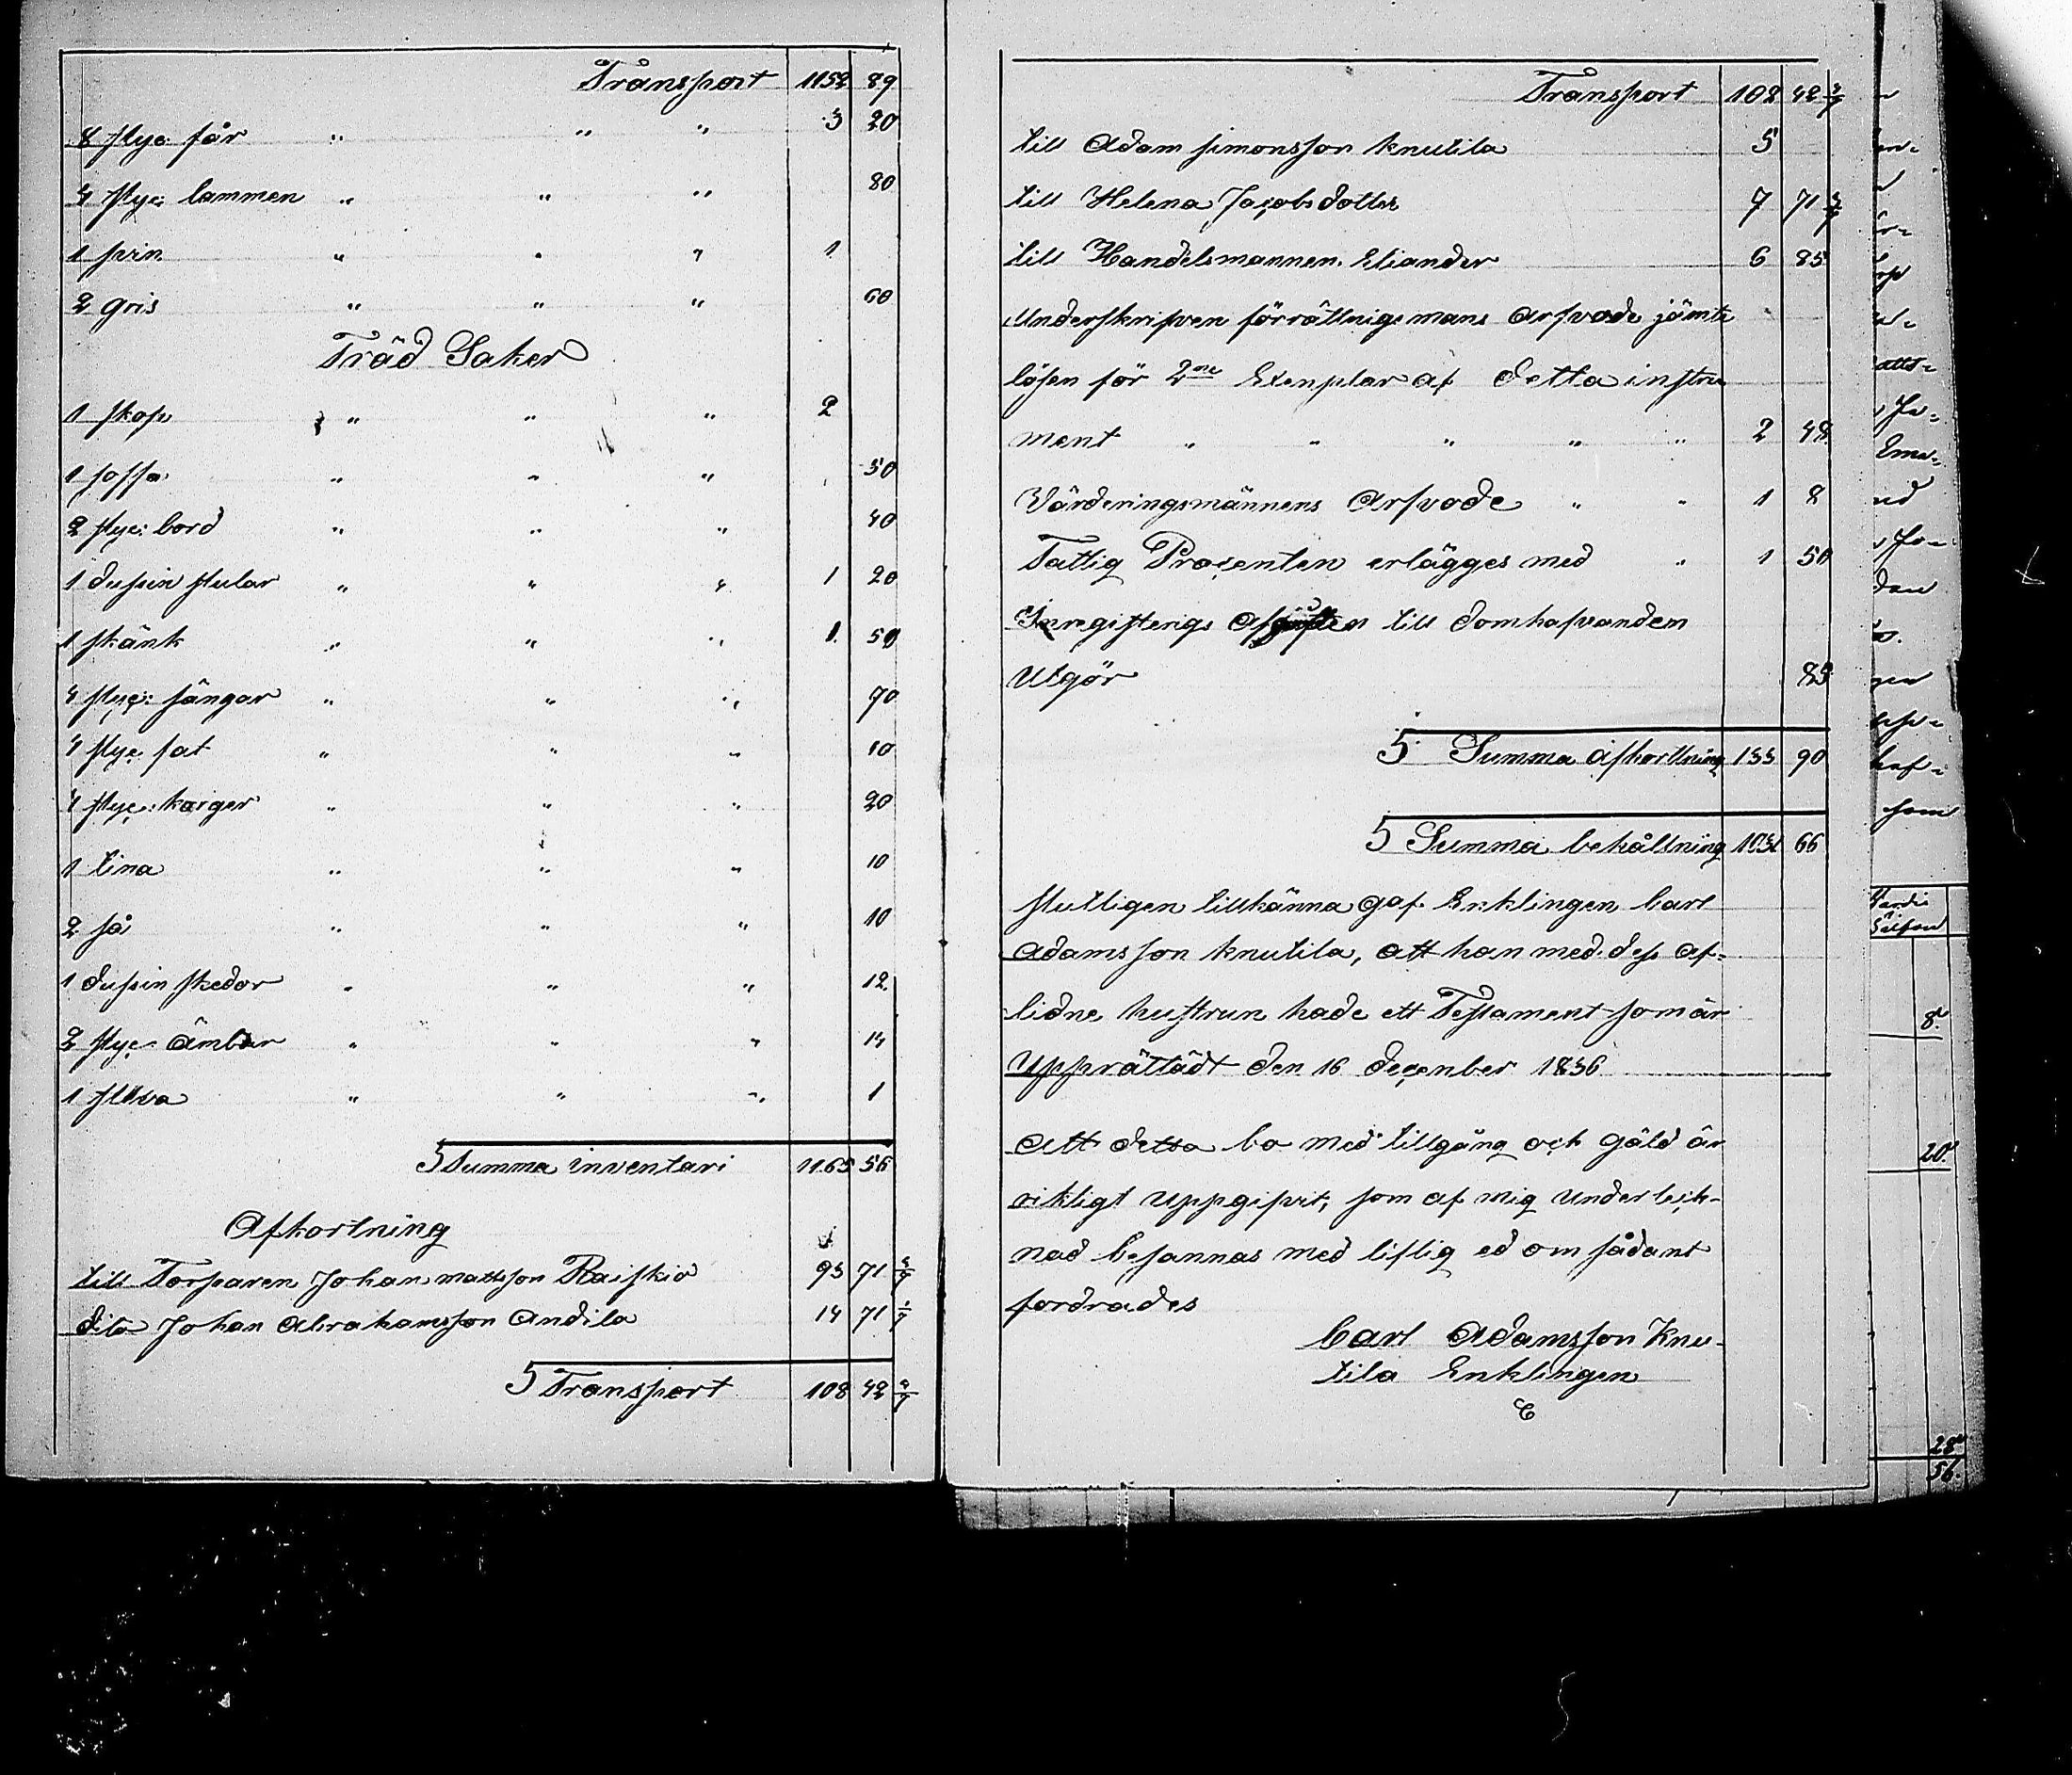 Transport 1152 89
8 styc: får " " " 3 20
4 styc: lammen " " " 80
1 svin " " " 1
2 gris " " " 60
Träd Saker
1 skåp " " " 2
1 soffa " " " 50
2 styc: bord " " " 40
1 dussin stular " " " 1 20
1 skänk " " " 1 50
4 styc: sängar " " " 70
4 styc fat " " " 10
4 styc: korgar " " " 20
1 tina " " " 10
2 så " " " 10
1 dussin skedar " " " 12
2 styc ämbar " " " 14
1 " " " 1
Summa inventari 1165 56
Afkortning
till Torparen Johan mattsson Raiskio 93 71 3/7
dito Johan Abrahamsson Andila 14 71 1/7
Transport 108 42 4/7
Transport 108 42 4/7
till Adam simonsson knutila 5
till Helena Jacobsdotter 7 71 3/7
till Handelsmannen Eliander 6 85
Underskrifven förrättnigsmans arfvode jämte
lösen för 2ne Exenplar af detta instru
ment " " " " " 2 48
Värderingsmännens arfvode " " 1 8
Fattig Procenten erlägges med " 1 50
Inregisterigs afgiften till domhafvanden
utgör 85
Summa afkortning 133 90
Summa behållning 1031 66
slutligen tillkänna gaf Enklingen Carl
Adamsson knutila, att han med dess af-
lidne hustrun hade ett Testament som är
upprättadt den 16 december 1836
Att detta bo med tillgång och gäld är
riktigt uppgifvit, som af mig underteck-
nad besannas med liflig ed om sådant
fordrades
Carl Adamsson Knu-
tila Enklingen
8.
20.
28
56.